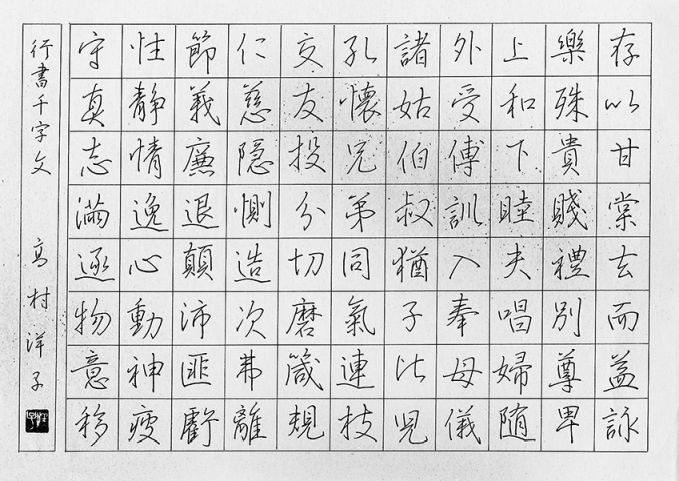 存以甘棠去而益詠
樂殊貴賤禮別尊卑
上和下睦夫唱婦随
外受傅訓入奉母儀
諸姑伯叔猶子比児
孔懐兄弟同氣連枝
交友投分切磨箴規
仁慈隠惻造次弗離
節義廉退顛沛匪虧
性静情逸心動神疲
守真志滿逐物意移
行書千字文 高村洋子